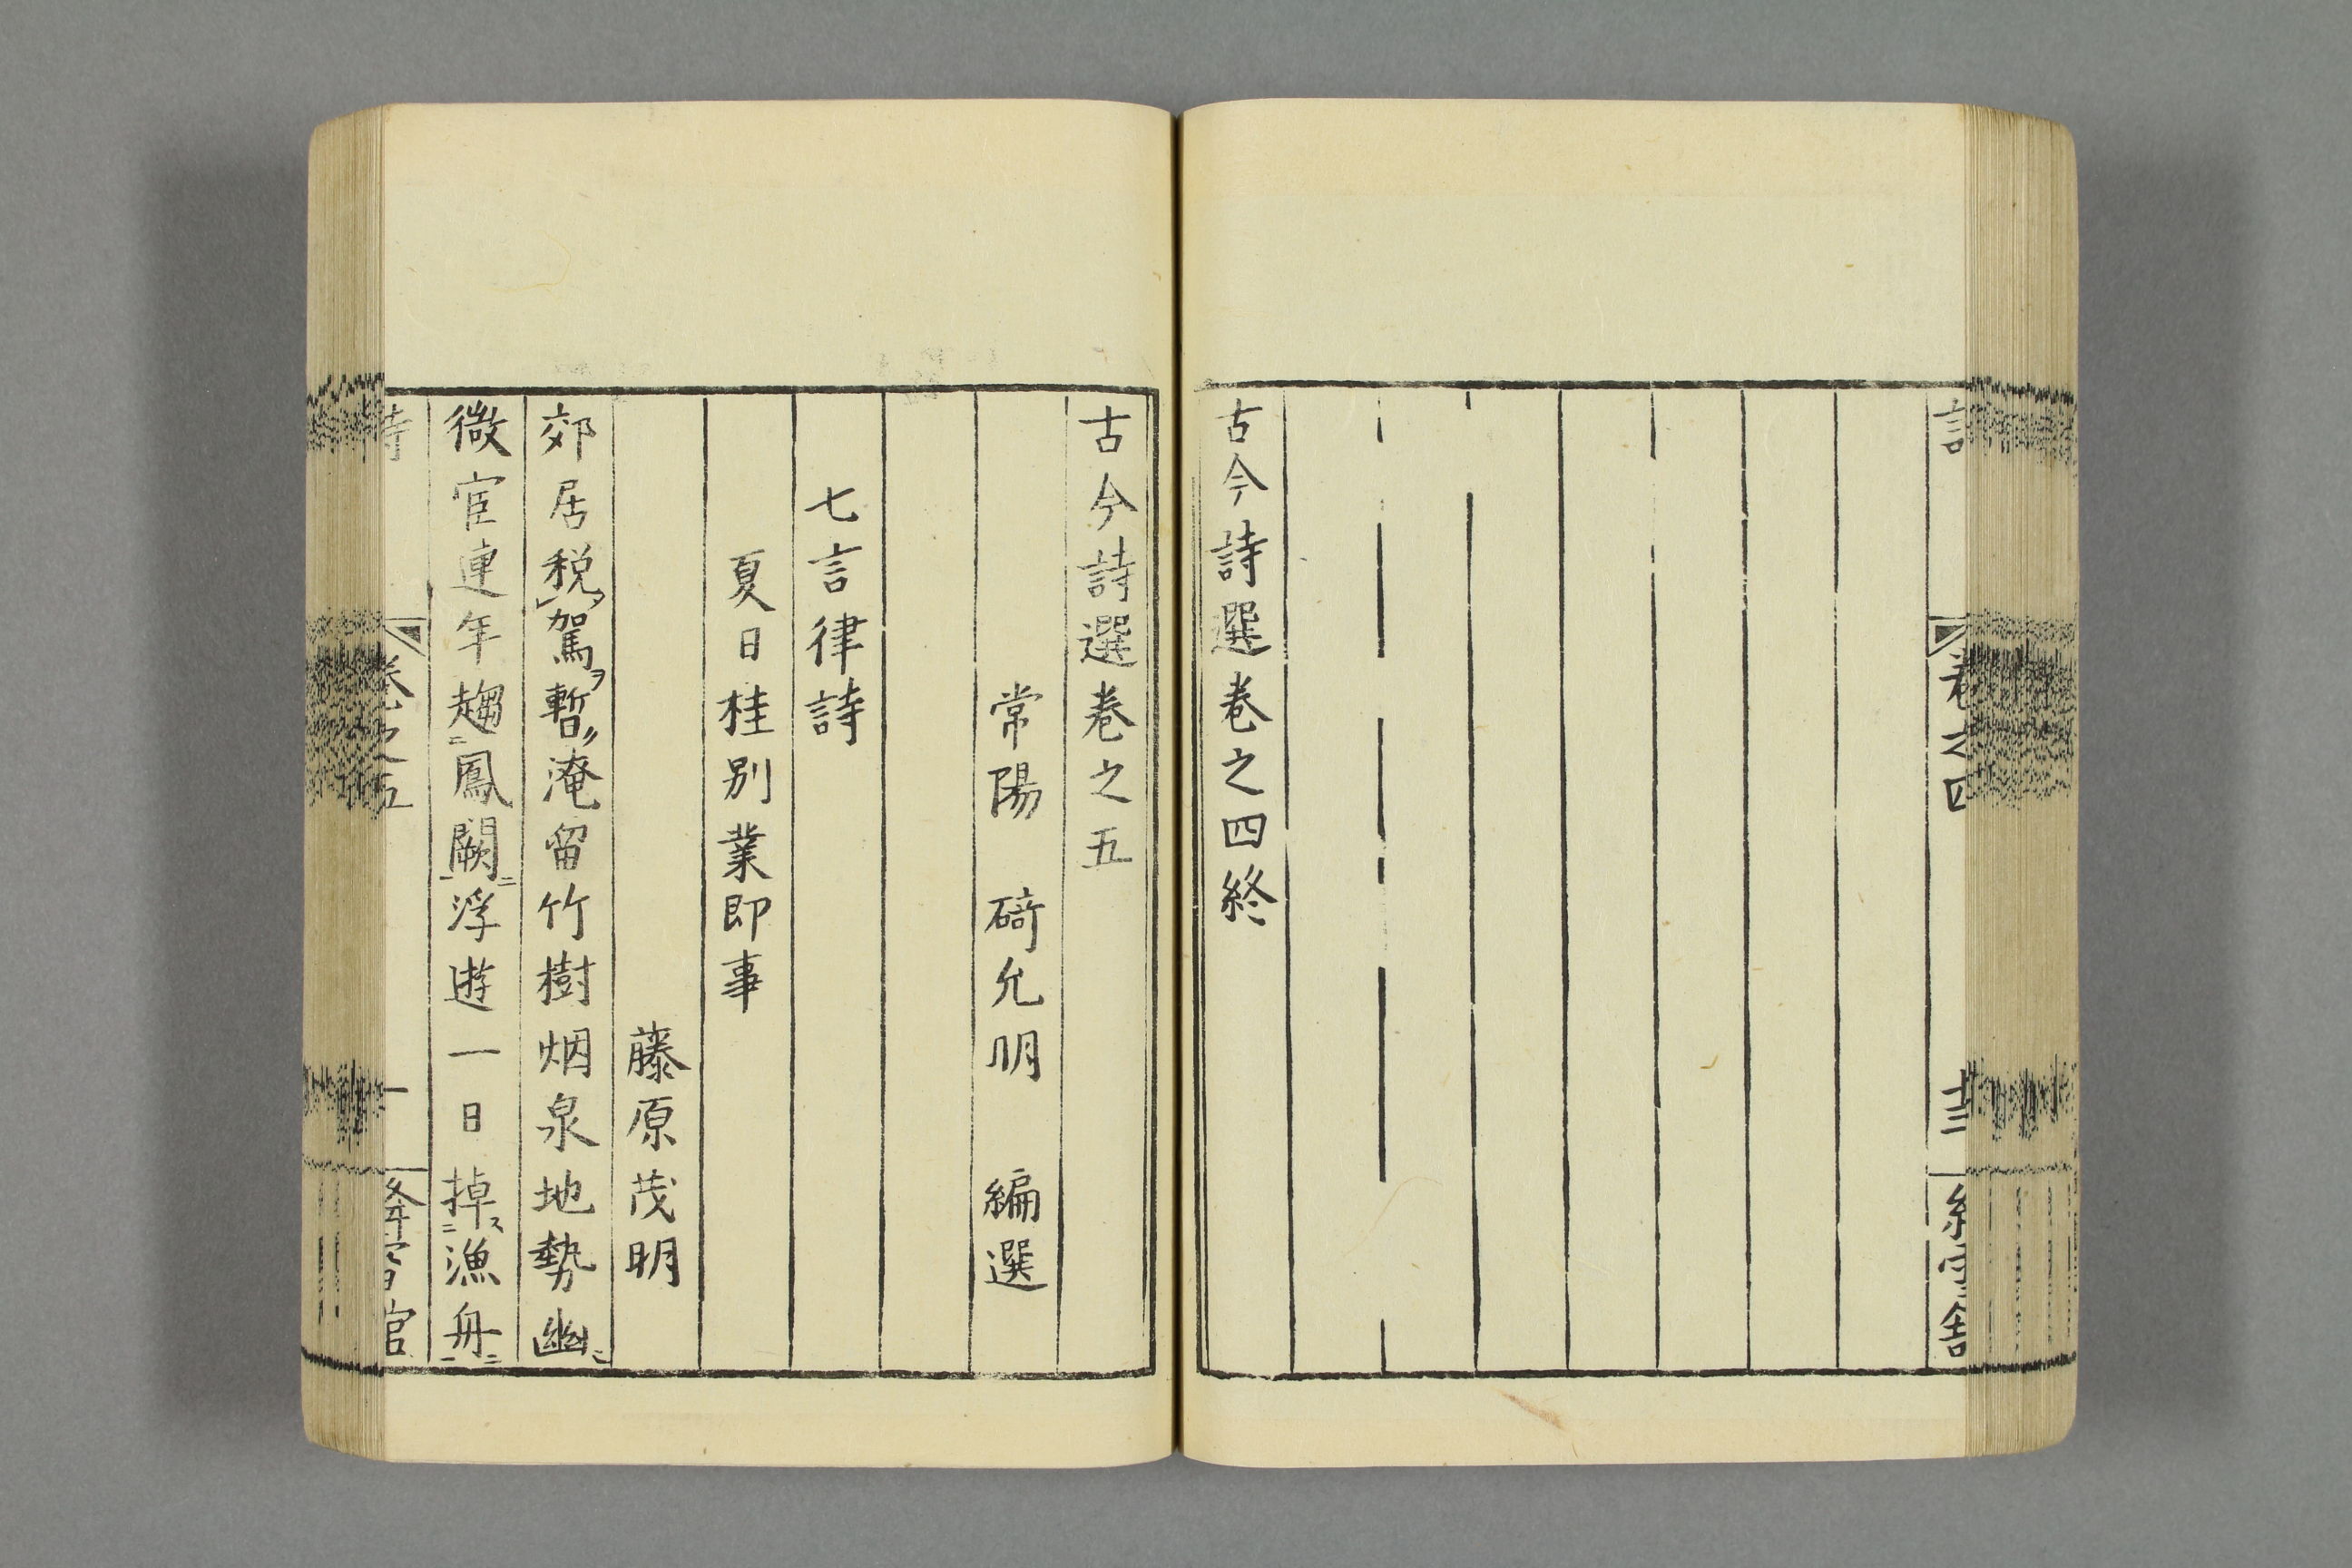 古今詩選卷之四終
古今詩選卷之五
常陽 碕允明 編選
七言律詩
夏日桂別業即事
藤原茂明
郊居税駕暫淹留竹樹烟泉地勢幽
微宦連年趨鳳闕浮遊一日掉漁舟
卷之五
一